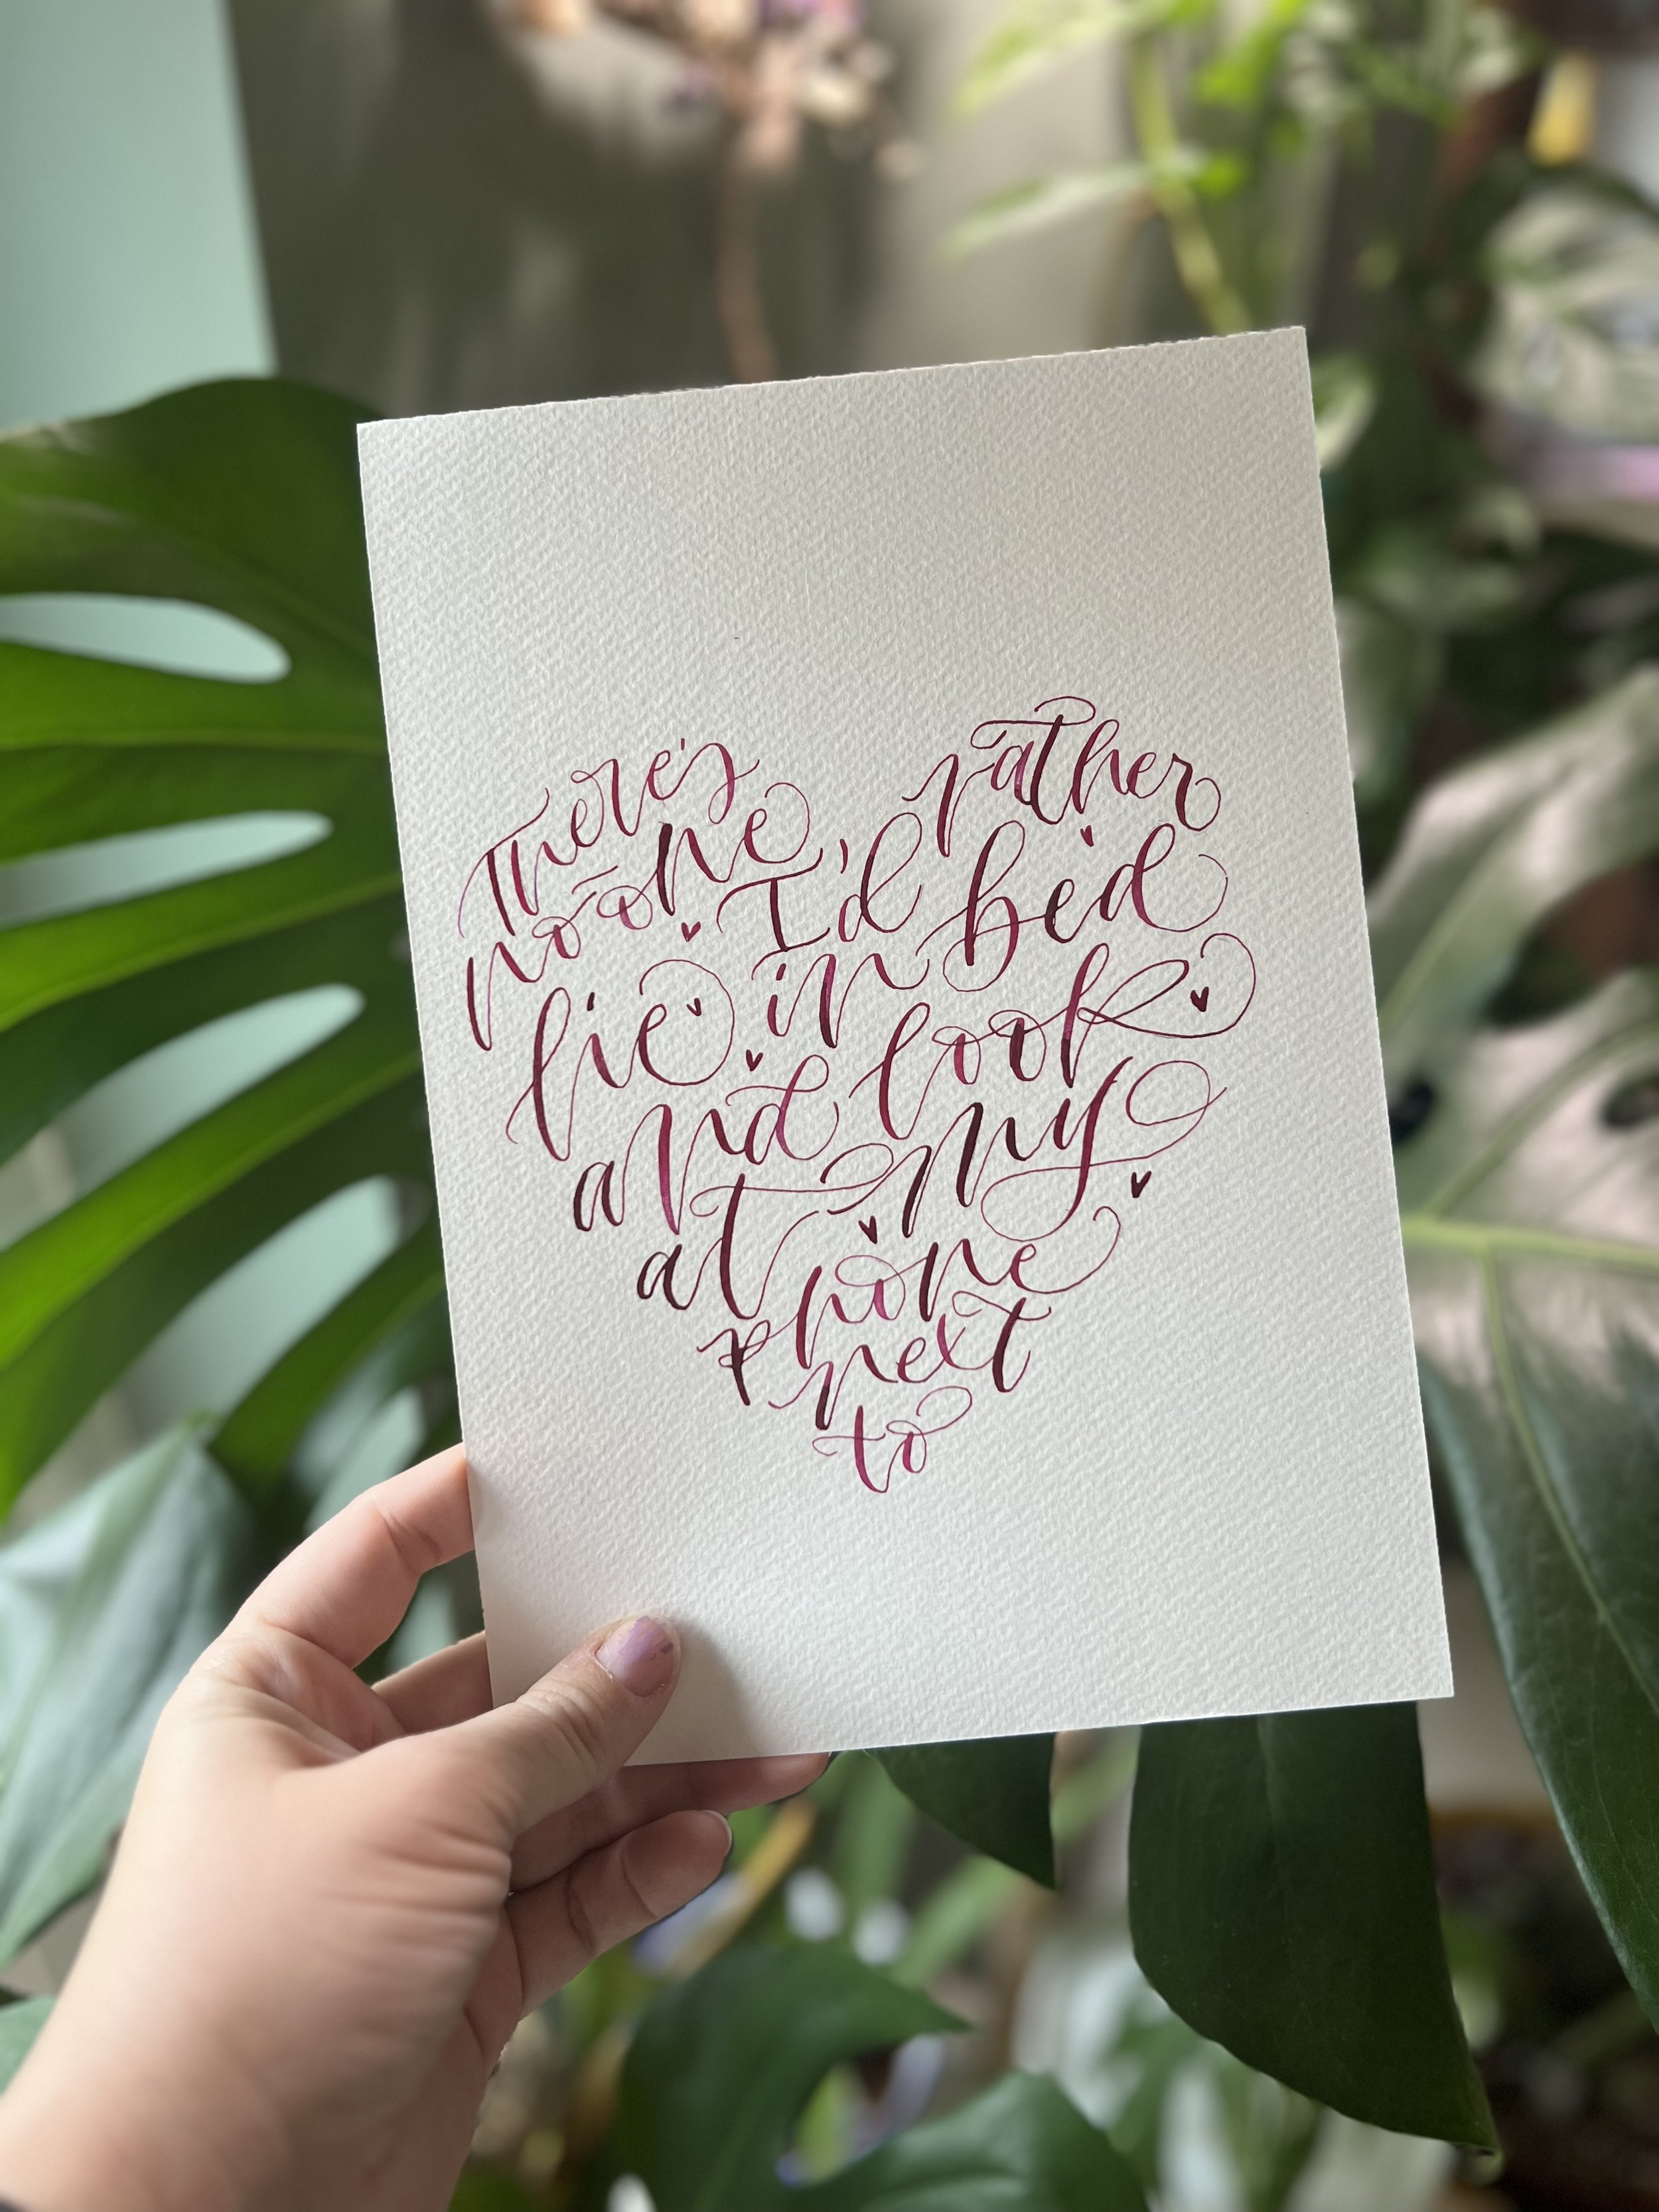 There's
no-one I'd rather
lie in bed
and look
at my
phone
next
to